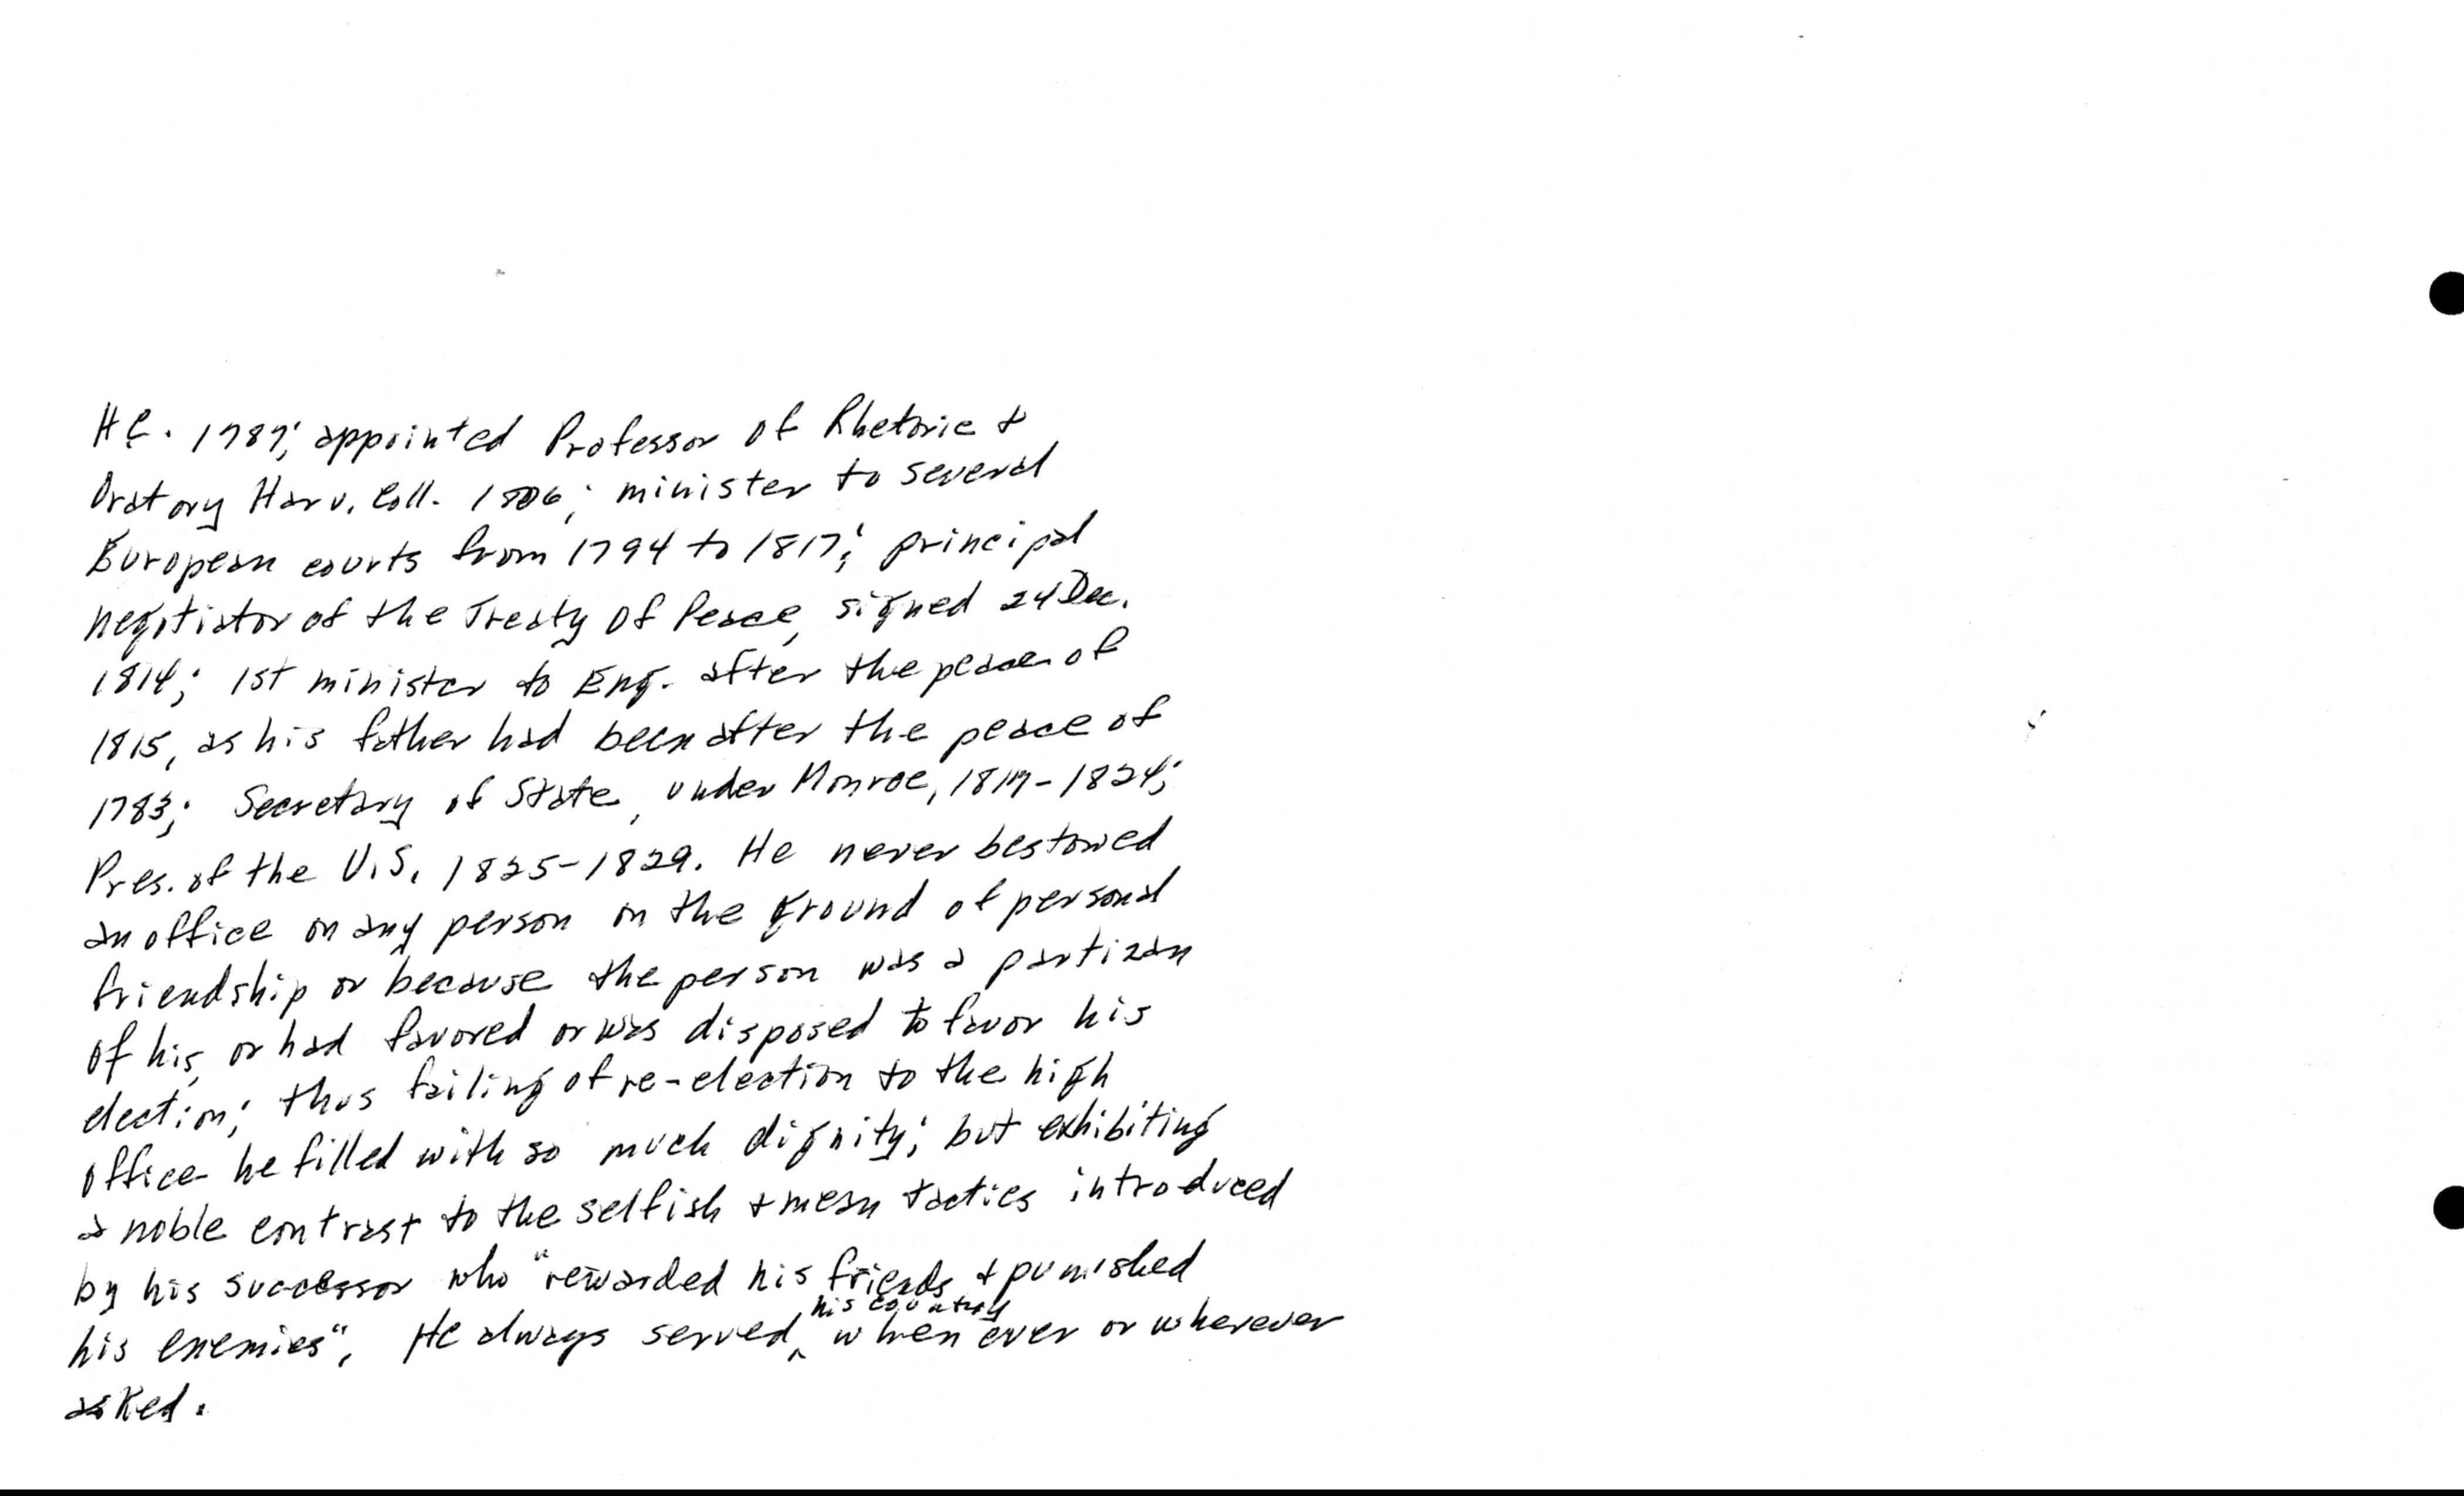 H.C. 1787; appointed Professor of Rhetoric &
Oratory Harv. Coll. 1806; minister to several
European courts from 1794 to 1817; principal
negotiator of the Treaty of Peace, signed 24 Dec.
1814; 1st minister to Eng. after the peace of
1815, as his father had been after the peace of
1783; Secretary of State, under Monroe, 1817-1824;
Pres. of the U.S. 1825-1829. He never bestowed
an office on any person on the ground of personal
friendship or because the person was a partizan
of his, or had favored or was disposed to favor his
election; thus failing of re-election to the high
office he filled with so much dignity; but exhibiting
a noble contrast to the selfish & mean tactics introduced
by his successor who "rewarded his friends & punished
his enemies". He always served his country when ever or wherever
asked.